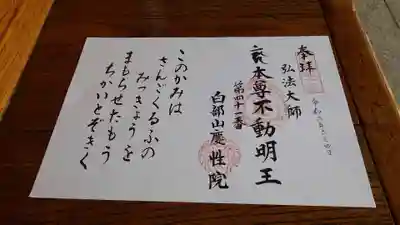 奉拝
弘法大師
本尊不動明王
第四十一番
白部山慶性院
このかみは
さんごくるふの
みつきょうを
まもらせたもう
ちかいとぞきく